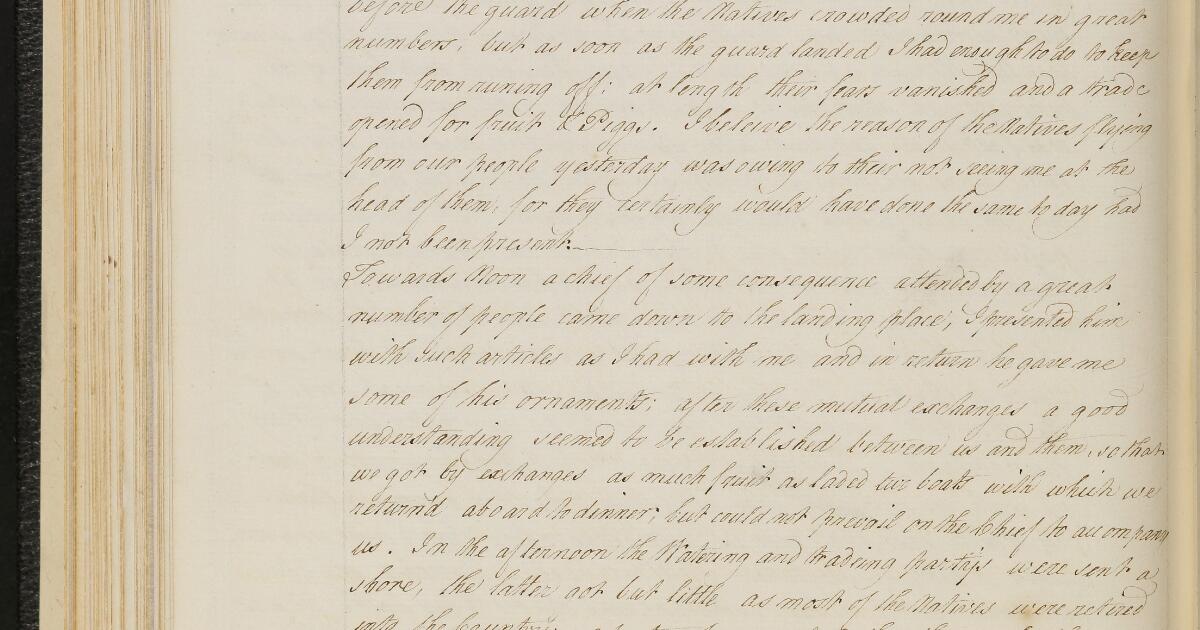 before the guard when the Natives crowded round me in great
numbers, but as soon as the guard landed I had enough to do to keep
them from runing off: at length their fears vanished and a trade
opened for fruit & Piggs. I beleive the reason of the Natives flying
from our people yesterday was owing to their not seeing me at the
head of them, for they certainly would have done the same to day had
I not been present.
Towards Noon a chief of some consequence attended by a great
number of people came down to the landing place, I presented him
with such articles as I had with me and in return he gave me
some of his ornaments; after these mutual exchanges a good
understanding seemed to be established between us and them, so that
we got by exchanges as much fruit as laded two boats with which we
return'd aboard to dinner; but could not prevail on the Chief to accompany
us. In the afternoon the Watering and tradeing partys were sent a
shore, the latter got but little as most of the Natives were retired
into the Country